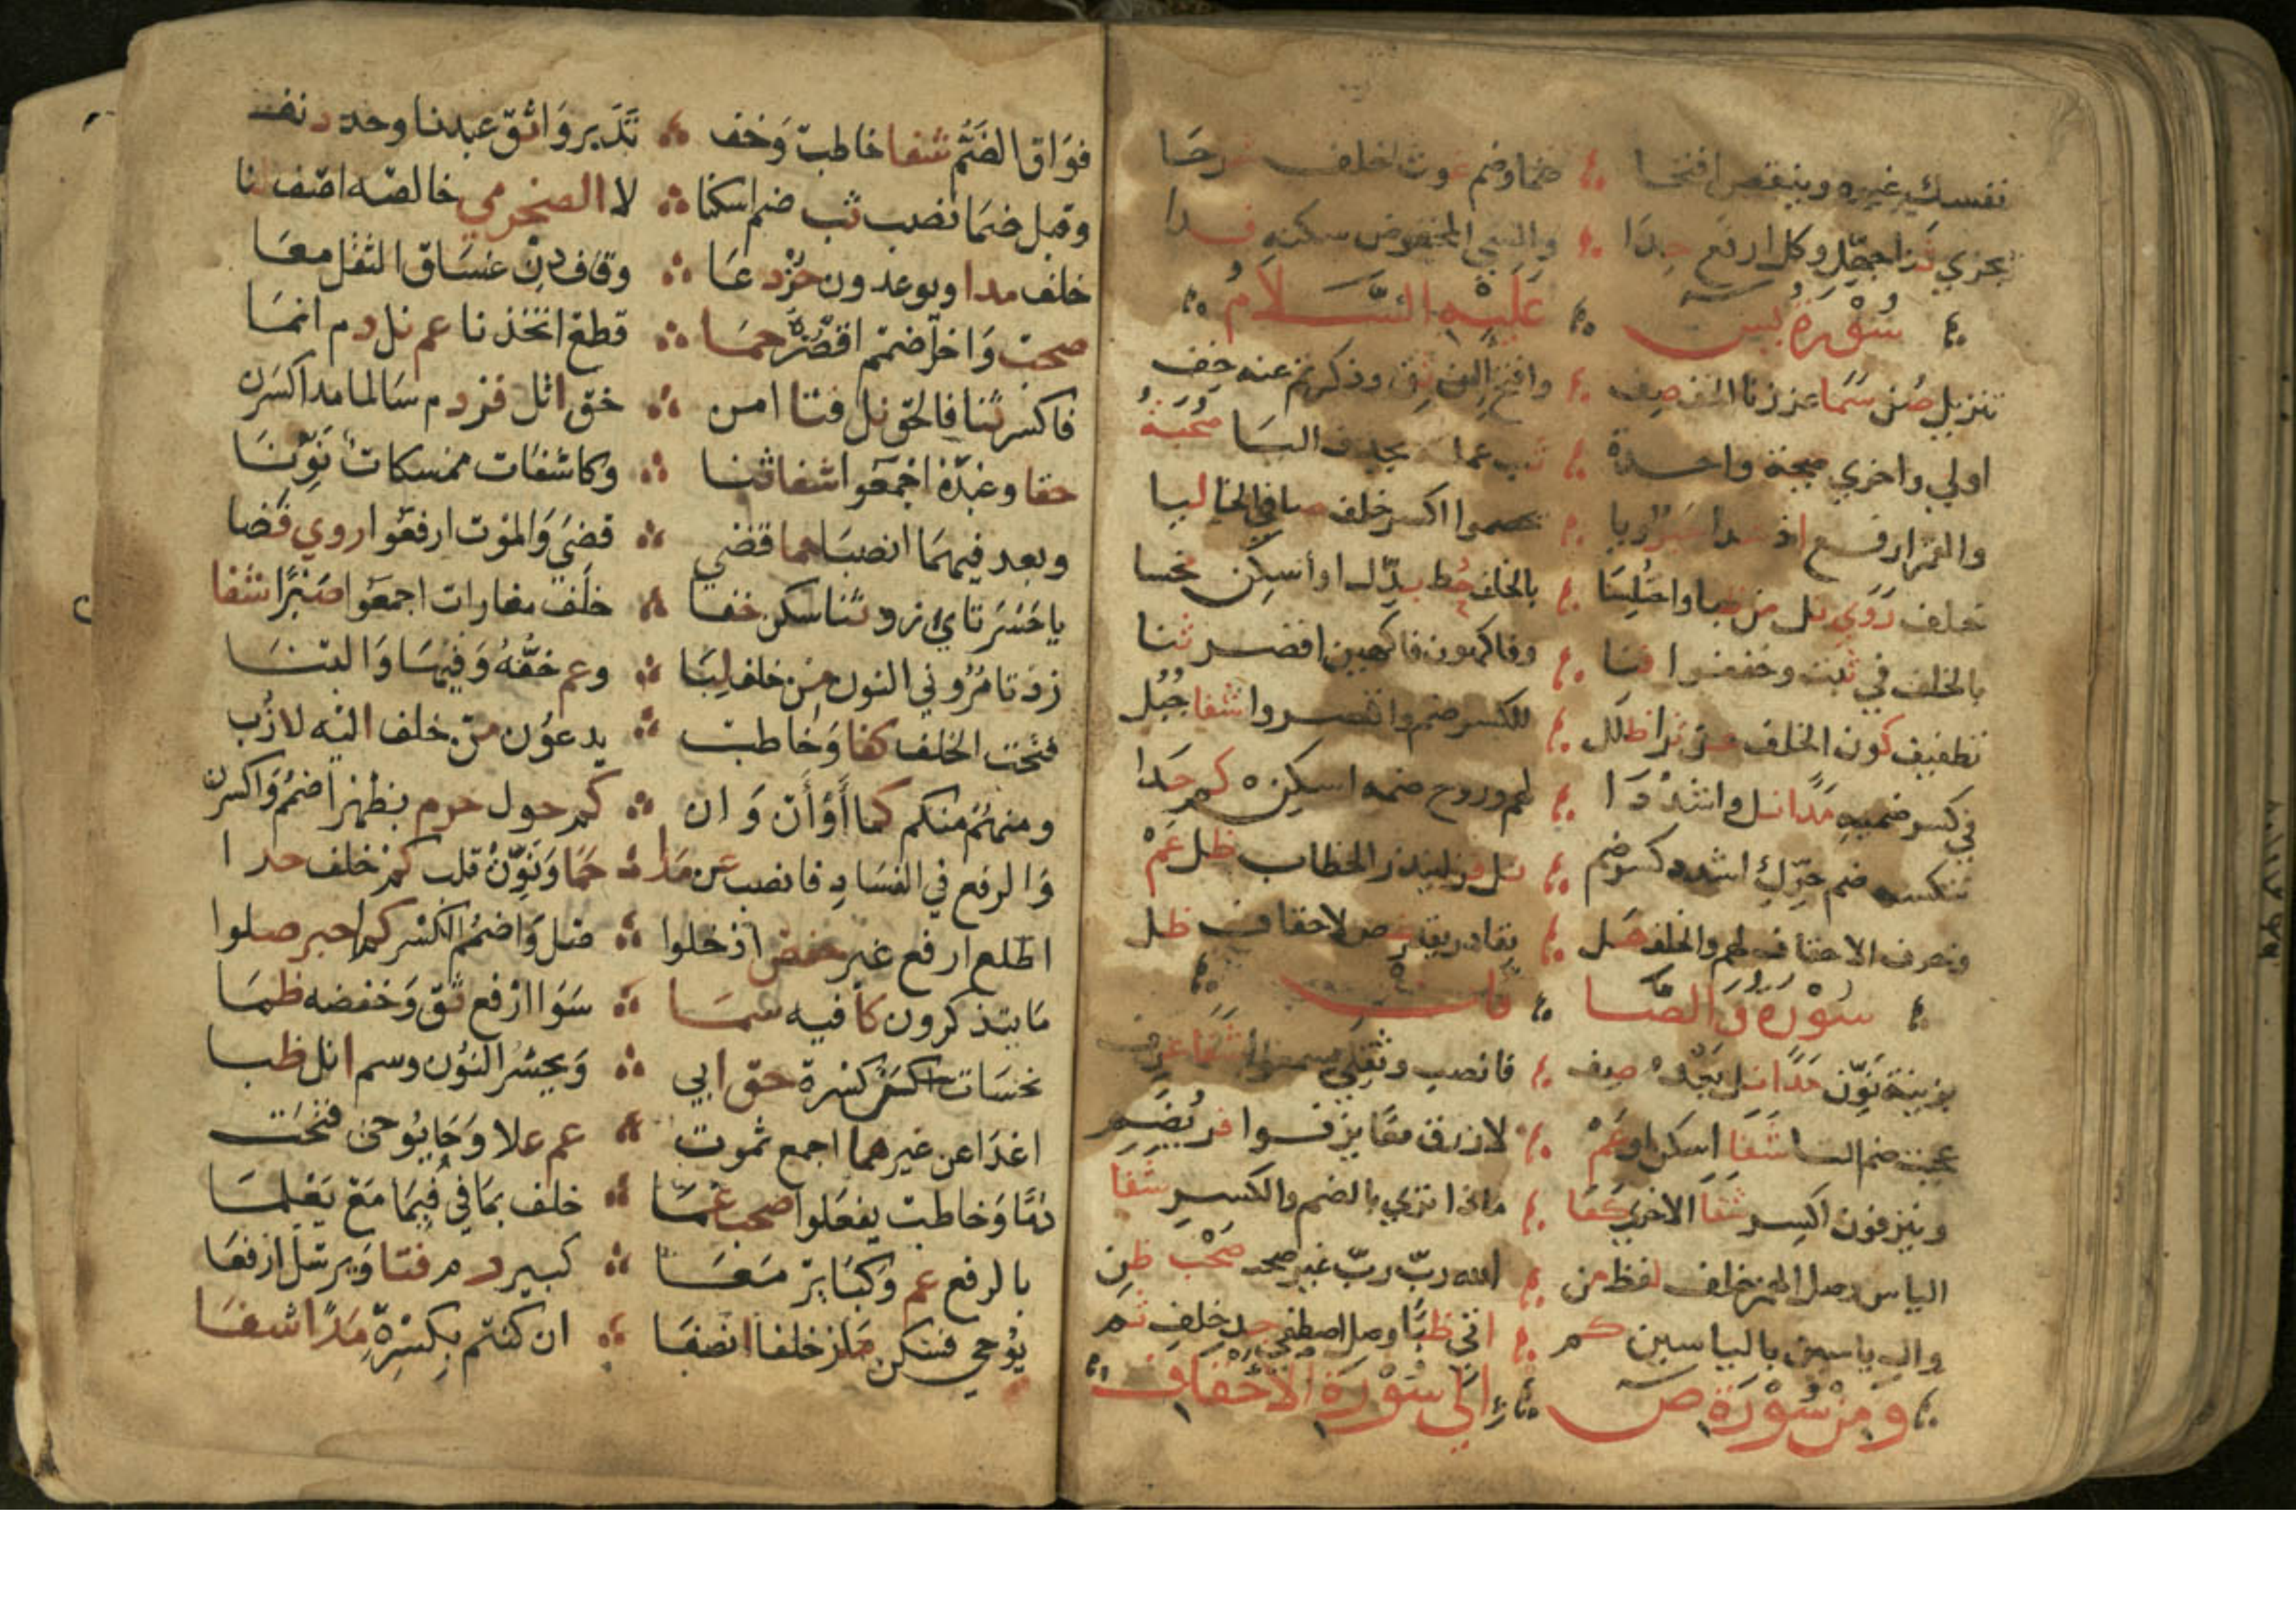 نفسك غيره وينقص افتحا ضما وضم غوث خلف شرحا
يجزي ثنا جهل وكل ارفع حدا والسيئ المخفوض سكنه فدا
سورة يس عليه السلام
تنزيل صن سما عززنا الخف صف وافتح اإن ثق وذكرتم عنه خف
اولي واخري صيحة واحدة ثب عملته يحذف الها صحبة
والقمر ارفع اذ شذا حبر ويا يخصموا اكسر خلف صافي الخا ليا
خلف روي نل من ظبا واختلسا بالخلف حط بدلا وأسكن بخسا
بالخلف في ثبت وخففوا فنا وفاكهون فاكهين اقصر ثنا
تطفيف كون الخلف عن ثرا ظلل للكسر ضم واقصروا شفا جبل
في كسر ضميه مدا نل واشددا لهم وروح ضمه اسكن كم حدا
ننكسه ضم حرك اشدد كسر ضم نل فز لينذر الخطاب ظل عم
وحرف الاحقاف لهم والخلف هل بقادر يقدر غص لاحقاف ظل
سورة والصافات
بزينة نون فدا نل بعد صف فانصب وثقلي يسمعوا شفا عرف
عجبت ضم التا شفا اسكن او عم لا ازرق معا يزفوا فز بضم
وينزفون اكسر شفا الاخري كفا ماذا تري بالضم والكسر شفا
الياس وصل الهمز خلف لفظ من الله رب رب غير صحب ظن
وال ياسين بالياسين كم اتي ظبا وصل اصطفي جد خلف ثم
ومن سورة ص الي سورة الأحقاف
فواق الضم شفا خاطب وخف تدبروا ثق عبدنا وحد دنف
وقبل ضما نصب ثب ضم اسكنا لا الحضرمي خالصة اضف لنا
خلف مدا ويوعدون حز دعا وقاف دن غساق الثقل معا
صحب وآخر اضمم اقصره حما قطع اتخذنا عم نل دم انما
فاكسر ثنا فالحق نل فتا امن خف اتل فز دم سالما مدا اكسرن
حقا وعبده اجمعوا شفا ثنا وكاشفات ممسكات نونا
وبعد فيهما انصبا حما قضي قضى والموت ارفعوا روي فضا
يا حسرتاي زد ثنا سكن خفا خلف مفازات اجمعوا صبرا شفا
زد تأمروني النون من خلف لبا وعم خفه وفيها والنبا
فتحت الخلف كفا وخاطب يدعون من خلف اليه لازب
ومنهم منكم كما أو أن وان كم حول حرم يظهر اضمم واكسرن
والرفع في الفساد فانصب عن مدا حما ونون قلب كم خلف حدا
اطلع ارفع غير حفص ادخلوا صل واضمم الكسر كما حبر صلوا
ما يتذكرون كافيه سما سواء ارفع ثق وخفضه ظما
نحسات اكسر كسرة حق ابي ويحشر النون وسم اتل ظبا
اغدا عن غيرهما اجمع ثمرت عم علا وحا يوحى فتحت
دما وخاطب يفعلوا صحب غما خلف بما في فبما مع يعلما
بالرفع عم وكبائر معا كبير دم فتا ويرسل ارفعا
يوحي فسكن ماز خلفا انصفا ان كنتم بكسره مدا شفا